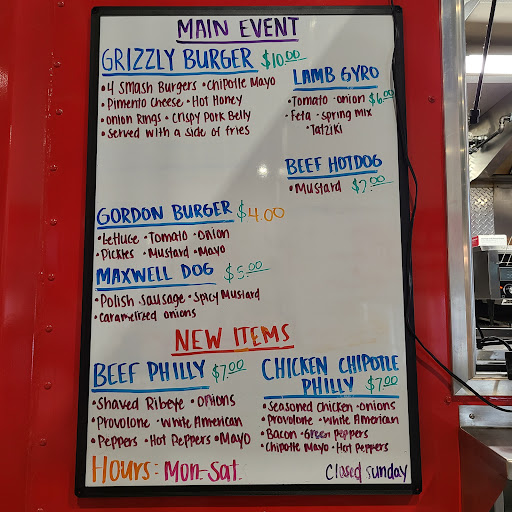 MAIN EVENT
GRIZZLY BURGER $10.00
• 4 Smash Burgers • Chipotle Mayo
• Pimento Cheese • Hot Honey
• Onion Rings • Crispy Pork Belly
• Served with a side of fries
LAMB GYRO
• Tomato • Onion $6.00
• Feta • Spring mix
• Tatziki
BEEF HOTDOG
• Mustard $7.00
GORDON BURGER $4.00
• Lettuce • Tomato • Onion
• Pickles • Mustard • Mayo
MAXWELL DOG $5.00
• Polish Sausage • Spicy Mustard
• Caramelized onions
NEW ITEMS
BEEF PHILLY $7.00
• Shaved Ribeye • Onions
• Provolone • White American
• Peppers • Hot Peppers • Mayo
CHICKEN CHIPOTLE
PHILLY $7.00
• Seasoned Chicken • Onions
• Provolone • White American
• Bacon • Green Peppers
• Chipotle Mayo • Hot Peppers
Hours: Mon-Sat.
Closed Sunday